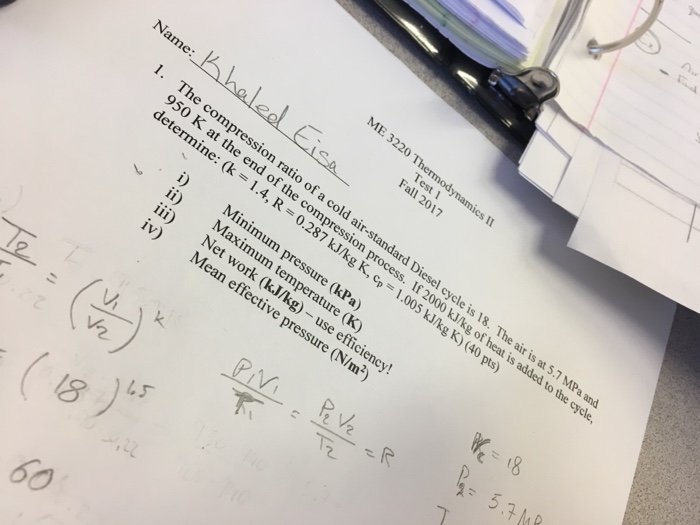 Name: Khaled Eisa
ME 3220 Thermodynamics II
Test 1
Fall 2017
1. The compression ratio of a cold air-standard Diesel cycle is 18. The air is at 5.7 MPa and
950 K at the end of the compression process. If 2000 kJ/kg of heat is added to the cycle,
determine: (k = 1.4, R = 0.287 kJ/kg K, cp = 1.005 kJ/kg K) (40 pts)
i) Minimum pressure (kPa)
ii) Maximum temperature (K)
iii) Net work (kJ/kg) – use efficiency!
iv) Mean effective pressure (N/m²)
T2 = (V1/V2)k
(18)
60
P1V1 = P2V2/T2 = R
= 18
P2 = 5.7 MP
T